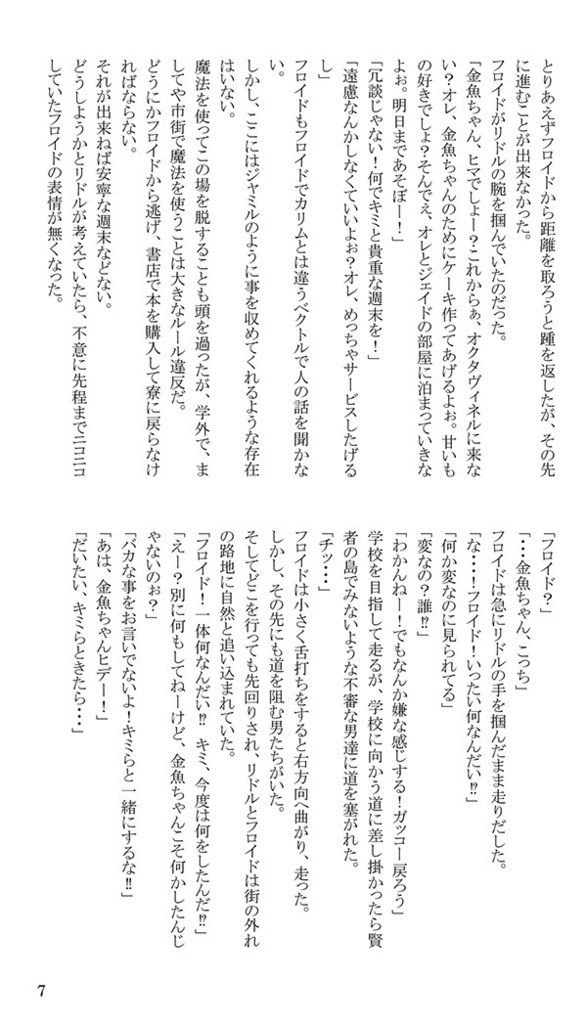 とりあえずフロイドから距離を取ろうと踵を返したが、その先
に進むことが出来なかった。
フロイドがリドルの腕を掴んでいたのだった。
「金魚ちゃん、ヒマでしょー？これからぁ、オクタヴィネルに来な
い？オレ、金魚ちゃんのためにケーキ作ってあげるよぉ。甘いも
の好きでしょ？そんでぇ、オレとジェイドの部屋に泊まっていきな
よぉ。明日まであそぼー！」
「冗談じゃない！何でキミと貴重な週末を！」
「遠慮なんかしなくていいよぉ？オレ、めっちゃサービスしたげる
し」
フロイドもフロイドでカリムとは違うベクトルで人の話を聞かな
い。
しかし、ここにはジャミルのように事を収めてくれるような存在
はいない。
魔法を使ってこの場を脱することも頭を過ったが、学外で、ま
してや市街で魔法を使うことは大きなルール違反だ。
どうにかフロイドから逃げ、書店で本を購入して寮に戻らなけ
ればならない。
それが出来ねば安寧な週末などない。
どうしようかとリドルが考えていたら、不意に先程までニコニコ
していたフロイドの表情が無くなった。
「フロイド？」
「・・・金魚ちゃん、こっち」
フロイドは急にリドルの手を掴んだまま走りだした。
「な・・・！フロイド！いったい何なんだい⁉」
「何か変なのに見られてる」
「変なの？誰⁉」
「わかんねー！でもなんか嫌な感じする！ガッコー戻ろう」
学校を目指して走るが、学校に向かう道に差し掛かったら賢
者の島でみないような不審な男達に道を塞がれた。
「チッ・・・」
フロイドは小さく舌打ちをすると右方向へ曲がり、走った。
しかし、その先にも道を阻む男たちがいた。
そしてどこを行っても先回りされ、リドルとフロイドは街の外れ
の路地に自然と追い込まれていた。
「フロイド！一体何なんだい⁉　キミ、今度は何をしたんだ⁉」
「えー？別に何もしてねーけど、金魚ちゃんこそ何かしたんじ
ゃないのぉ？」
「バカな事をお言いでないよ！キミらと一緒にするな‼」
「あは、金魚ちゃんヒデー！」
「だいたい、キミらときたら・・・」
7